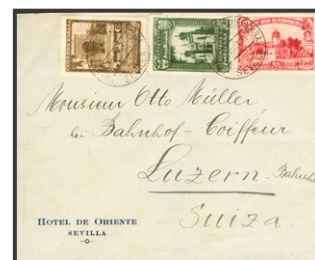 Monsieur Otto Müller,
bei Bahnhof-Coiffeur
Luzern-
Suiza.
HOTEL DE ORIENTE
SEVILLA
-o-